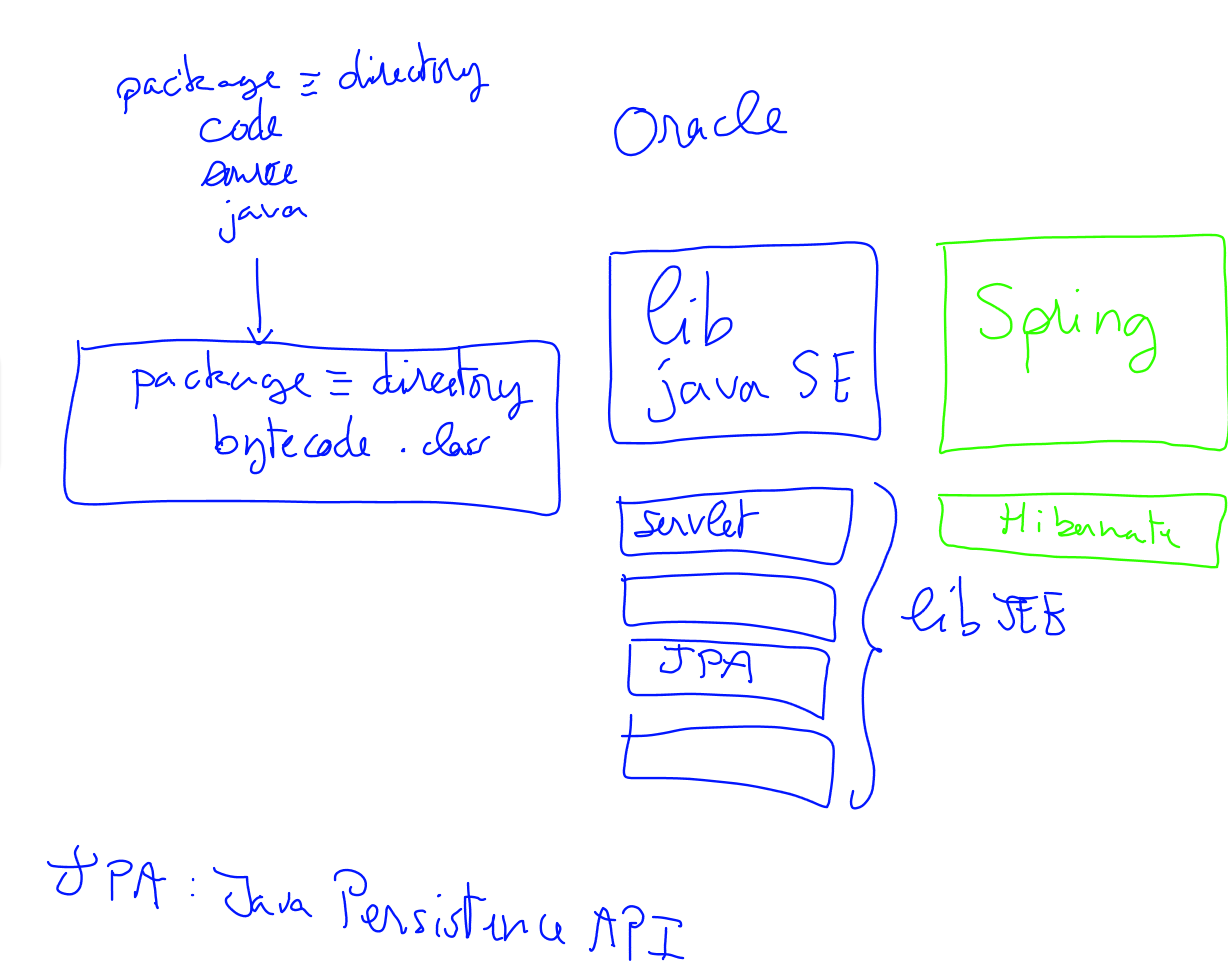 package ≡ directory
code
source
java
package ≡ directory
bytecode .class
Oracle
lib
java SE
servlet
JPA
lib JEE
Spring
Hibernate
JPA : Java Persistence API